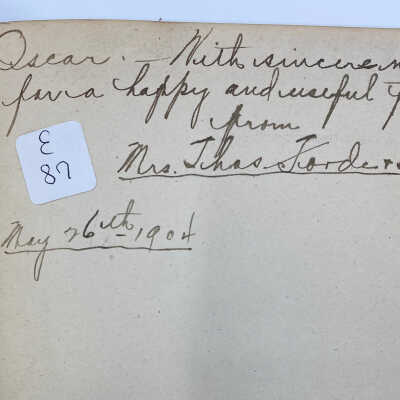 Oscar. – With sincere
for a happy and useful
from
Mrs. Thos. Korders
E
87
May 26th, 1904